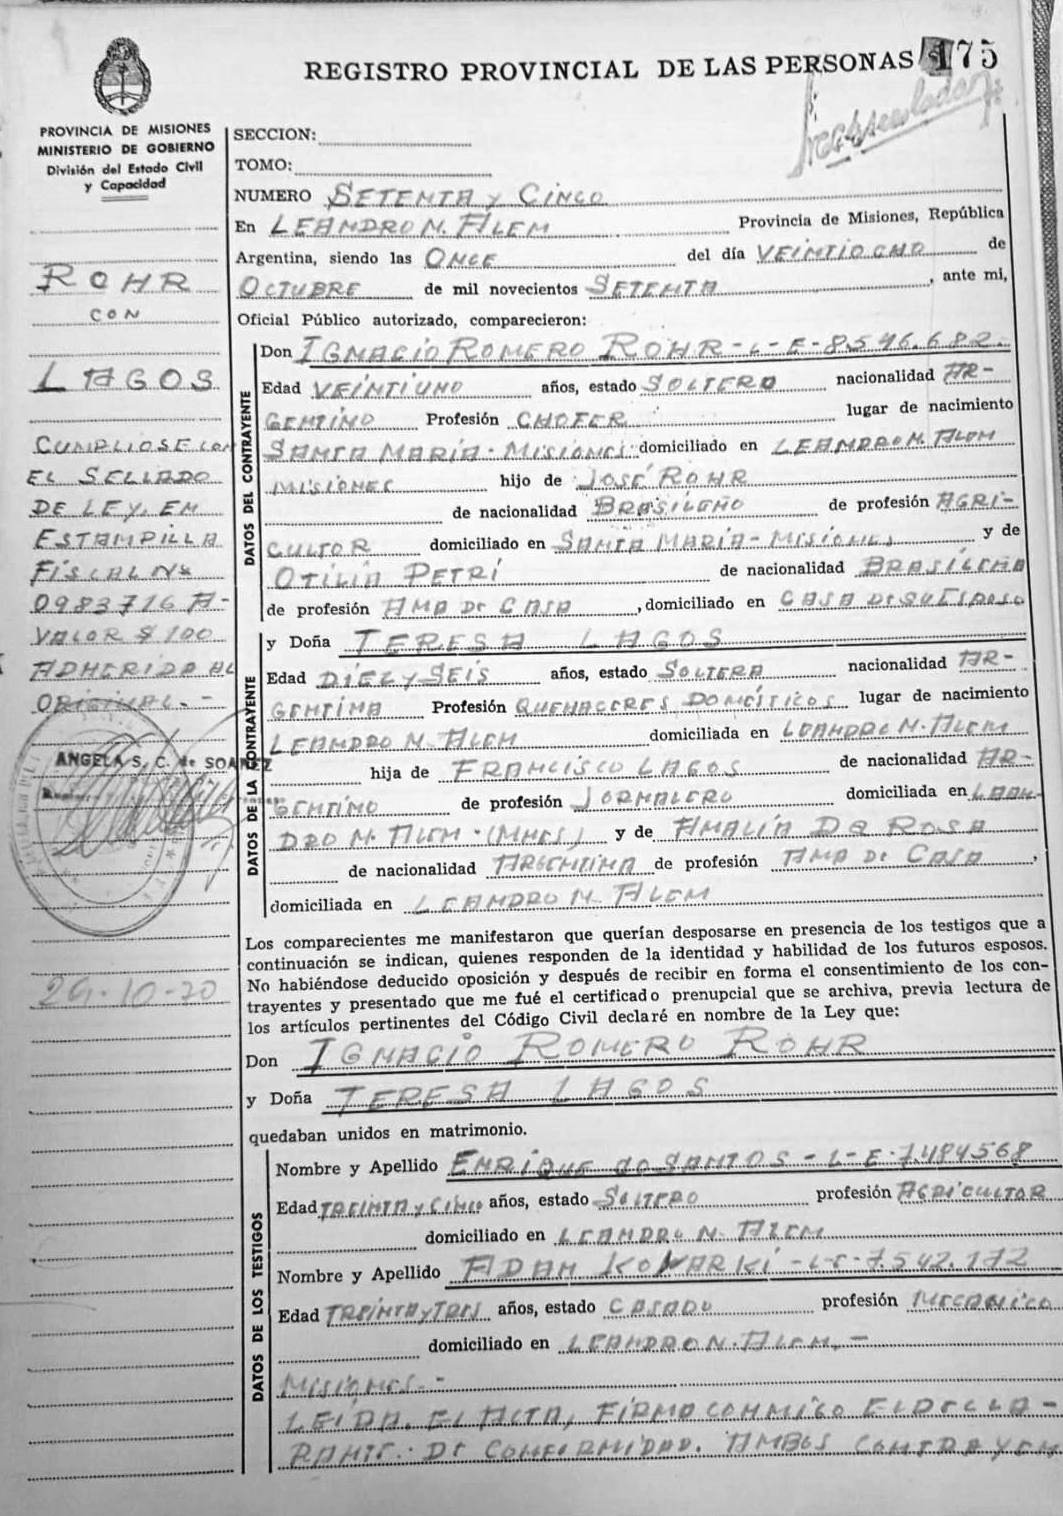 REGISTRO PROVINCIAL DE LAS PERSONAS 175
PROVINCIA DE MISIONES
MINISTERIO DE GOBIERNO
División del Estado Civil
y Capacidad
ROHR
CON
LAGOS
CUMPLIOSE CON
EL SELLADO
DE LEY, EN
ESTAMPILLA
FISCAL Nº
0983716 A-
VALOR $ 100
ADHERIDA AL
ORIGINAL.-
ANGELA S. C. de SOAREZ
29-10-70
SECCION:
TOMO:
NUMERO SETENTA y CINCO
En LEANDRO N. ALEM Provincia de Misiones, República
Argentina, siendo las ONCE del día VEINTIOCHO de
OCTUBRE de mil novecientos SETENTA, ante mi,
Oficial Público autorizado, comparecieron:
DATOS DEL CONTRAYENTE
Don IGNACIO ROMERO ROHR-L-E-8.546.682.
Edad VEINTIUNO años, estado SOLTERO nacionalidad AR-
GENTINO Profesión CHOFER lugar de nacimiento
SANTA MARÍA-MISIONES domiciliado en LEANDRO N. ALEM
MISIONES hijo de JOSÉ ROHR
de nacionalidad BRASILEÑO de profesión AGRI-
CULTOR domiciliado en SANTA MARÍA-MISIONES y de
OTILIA PETRI de nacionalidad BRASILEÑA
de profesión AMA DE CASA, domiciliado en CASA DE SU ESPOSO
DATOS DE LA CONTRAYENTE
y Doña TERESA LAGOS
Edad DIEZ y SEIS años, estado SOLTERA nacionalidad AR-
GENTINA Profesión QUEHACERES DOMÉSTICOS lugar de nacimiento
LEANDRO N. ALEM domiciliada en LEANDRO N. ALEM
hija de FRANCISCO LAGOS de nacionalidad AR-
GENTINO de profesión JORNALERO domiciliada en LEAN-
DRO N. ALEM-(MNES) y de AMALIA DA ROSA
de nacionalidad ARGENTINA de profesión AMA DE CASA,
domiciliada en LEANDRO N. ALEM
Los comparecientes me manifestaron que querían desposarse en presencia de los testigos que a
continuación se indican, quienes responden de la identidad y habilidad de los futuros esposos.
No habiéndose deducido oposición y después de recibir en forma el consentimiento de los con-
trayentes y presentado que me fué el certificado prenupcial que se archiva, previa lectura de
los artículos pertinentes del Código Civil declaré en nombre de la Ley que:
Don IGNACIO ROMERO ROHR
y Doña TERESA LAGOS
quedaban unidos en matrimonio.
DATOS DE LOS TESTIGOS
Nombre y Apellido ENRIQUE do SANTOS-L-E-7.484568
Edad TREINTA y CINCO años, estado SOLTERO profesión AGRICULTOR
domiciliado en LEANDRO N. ALEM
Nombre y Apellido ADAM KONARKI-L-E-7.542.172
Edad TREINTA y TRES años, estado CASADO profesión MECANICO
domiciliado en LEANDRO N. ALEM,-
MISIONES.-
LEÍDA EL ACTA, FIRMA CONMIGO EL DECLA-
RANTE: DE CONFORMIDAD. AMBOS CONTRAYEN